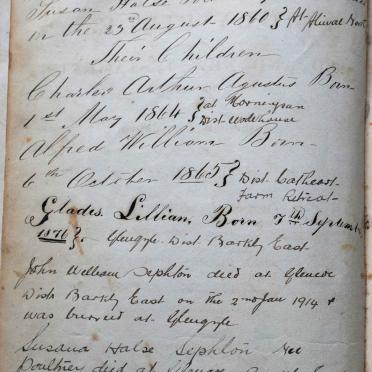 Susan Halse
in the 23rd August 1860 } At Aliwal North
Their Children
Charles Arthur Agustus Born
1st May 1864 } at Morningsun Dist Wodehouse
Alfred William Born
6th October 1865 } Dist Cathcart Farm Retreat
Glades. Lillian. Born 7th September
1876 } Glengyle Dist Barkly East
John William Sephton died at Glencoe
Dist Barkly East on the 2nd Jan 1914 &
was burried at Glengyle
Susana Halse Sephton nee
died at